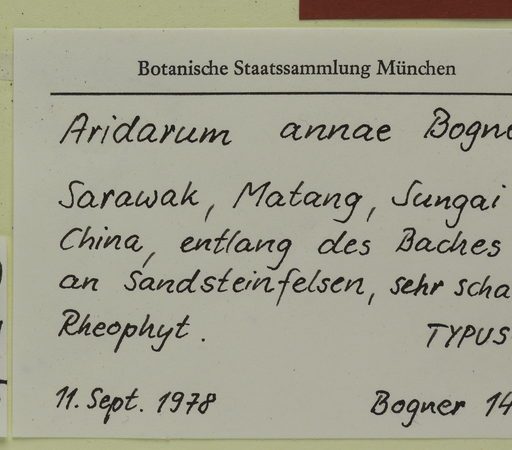 Botanische Staatssammlung München
Aridarum annae Bogne
Sarawak, Matang, Sungai
China, entlang des Baches
an Sandsteinfelsen, sehr scha
Rheophyt. TYPUS
11. Sept. 1978 Bogner 14